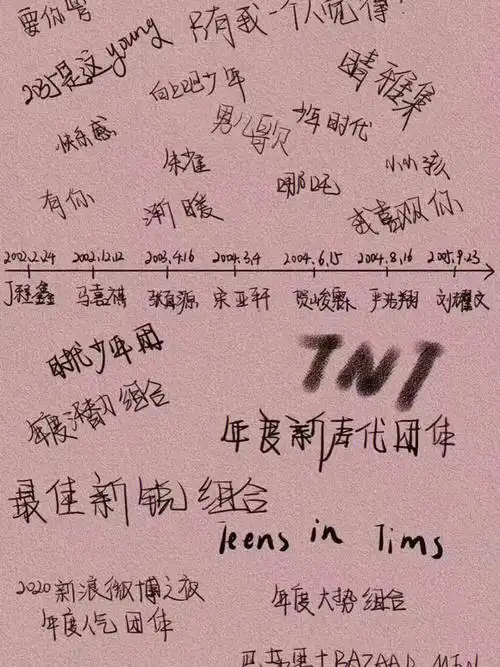 要你管
只有我一个人觉得!
255是这young
向上吧少年
晴雅集
快乐感
男儿歌
少年时代
朱雀
哪吒
小小孩
有你
渐暖
我喜欢你
2002.2.24 2002.12.12 2003.4.16 2004.3.4 2004.6.15 2004.8.16 2005.9.23
丁程鑫 马嘉祺 张真源 宋亚轩 贺峻霖 严浩翔 刘耀文
时代少年团
TNT
年度潜力组合
年度新声代团体
最佳新锐组合
Teens in Tims
2020新浪微博之夜
年度人气团体
年度大势组合
BAZAAR MEN